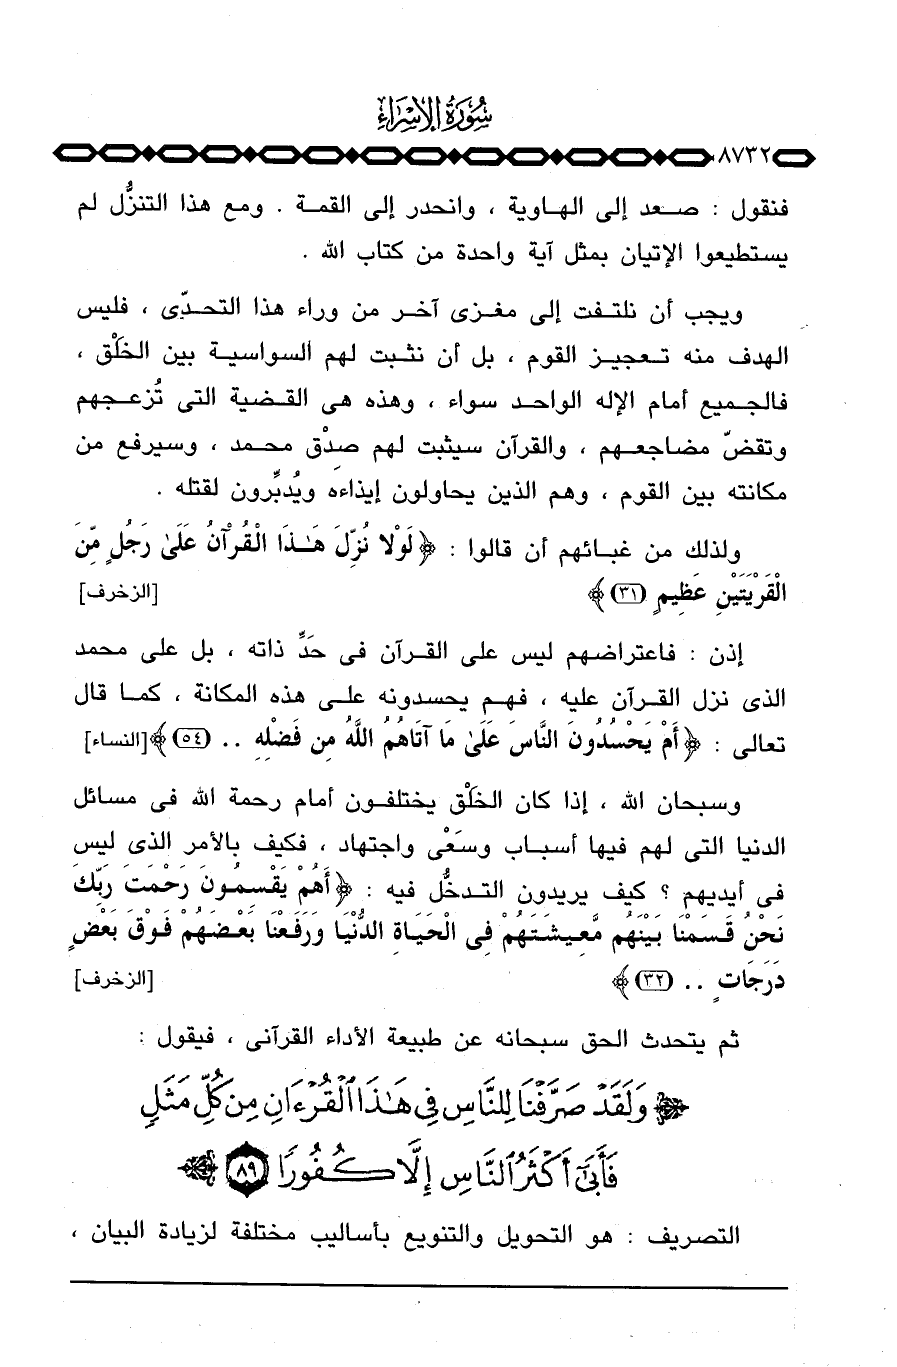 سُورَةُ الإِسْرَاءِ
٨٧٣٢
فنقول : صعد إلى الهاوية ، وانحدر إلى القمة . ومع هذا التنزُّل لم
يستطيعوا الإتيان بمثل آية واحدة من كتاب الله .
ويجب أن نلتفت إلى مغزى آخر من وراء هذا التحدّى ، فليس
الهدف منه تعجيز القوم ، بل أن نثبت لهم السواسية بين الخَلْق ،
فالجميع أمام الإله الواحد سواء ، وهذه هى القضية التى تُزعجهم
وتقضّ مضاجعهم ، والقرآن سيثبت لهم صِدْق محمد ، وسيرفع من
مكانته بين القوم ، وهم الذين يحاولون إيذاءه ويُدبِّرون لقتله .
ولذلك من غبائهم أن قالوا : ﴿لَوْلا نُزِّلَ هَـٰذَا الْقُرْآنُ عَلَىٰ رَجُلٍ مِّنَ
الْقَرْيَتَيْنِ عَظِيمٍ (٣١)﴾ [الزخرف]
إذن : فاعتراضهم ليس على القرآن فى حَدِّ ذاته ، بل على محمد
الذى نزل القرآن عليه ، فهم يحسدونه على هذه المكانة ، كما قال
تعالى : ﴿أَمْ يَحْسُدُونَ النَّاسَ عَلَىٰ مَا آتَاهُمُ اللَّهُ مِن فَضْلِهِ .. (٥٤)﴾ [النساء]
وسبحان الله ، إذا كان الخَلْق يختلفون أمام رحمة الله فى مسائل
الدنيا التى لهم فيها أسباب وسَعْى واجتهاد ، فكيف بالأمر الذى ليس
فى أيديهم ؟ كيف يريدون التدخُّل فيه : ﴿أَهُمْ يَقْسِمُونَ رَحْمَتَ رَبِّكَ
نَحْنُ قَسَمْنَا بَيْنَهُم مَّعِيشَتَهُمْ فِى الْحَيَاةِ الدُّنْيَا وَرَفَعْنَا بَعْضَهُمْ فَوْقَ بَعْضٍ
دَرَجَاتٍ .. (٣٢)﴾ [الزخرف]
ثم يتحدث الحق سبحانه عن طبيعة الأداء القرآنى ، فيقول :
﴿ وَلَقَدْ صَرَّفْنَا لِلنَّاسِ فِى هَـٰذَا ٱلْقُرْءَانِ مِن كُلِّ مَثَلٍ
فَأَبَىٰٓ أَكْثَرُ ٱلنَّاسِ إِلَّا كُفُورًا ٨٩ ﴾
التصريف : هو التحويل والتنويع بأساليب مختلفة لزيادة البيان ،